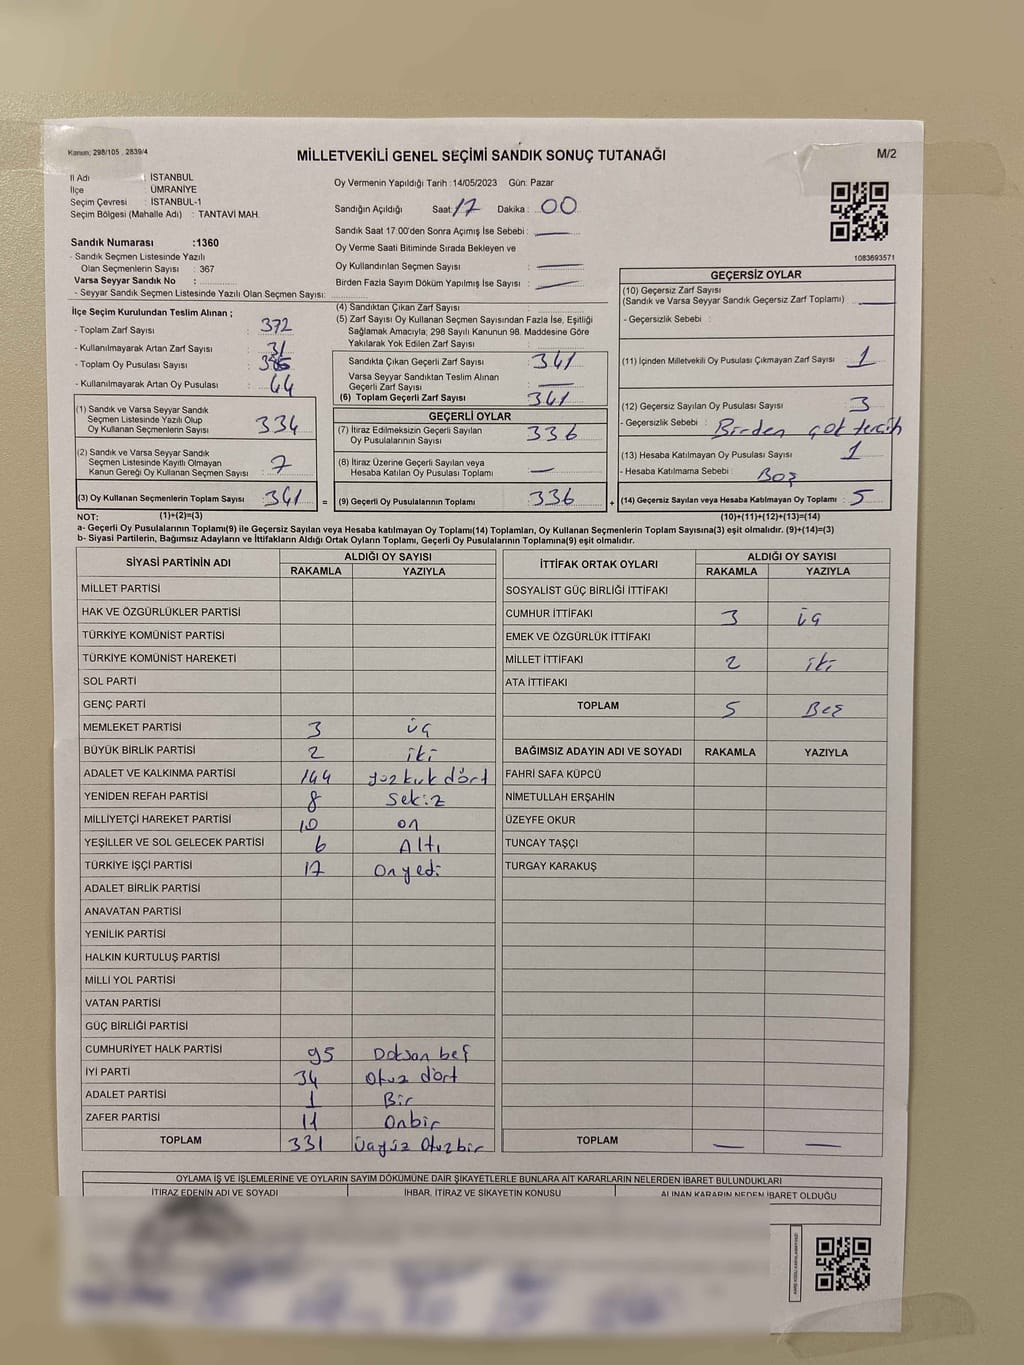 Kanun: 298/105 , 2839/4
MİLLETVEKİLİ GENEL SEÇİMİ SANDIK SONUÇ TUTANAĞI
M/2
İl Adı : İSTANBUL
İlçe : ÜMRANİYE
Seçim Çevresi : İSTANBUL-1
Seçim Bölgesi (Mahalle Adı) : TANTAVİ MAH.
Sandık Numarası :1360
- Sandık Seçmen Listesinde Yazılı
Olan Seçmenlerin Sayısı : 367
Varsa Seyyar Sandık No :
- Seyyar Sandık Seçmen Listesinde Yazılı Olan Seçmen Sayısı:
Oy Vermenin Yapıldığı Tarih : 14/05/2023 Gün: Pazar
Sandığın Açıldığı Saat: 17 Dakika : 00
Sandık Saat 17:00'den Sonra Açımış İse Sebebi :
Oy Verme Saati Bitiminde Sırada Bekleyen ve
Oy Kullandırılan Seçmen Sayısı :
Birden Fazla Sayım Döküm Yapılmış İse Sayısı :
1083693571
İlçe Seçim Kurulundan Teslim Alınan ;
- Toplam Zarf Sayısı : 372
- Kullanılmayarak Artan Zarf Sayısı : 31
- Toplam Oy Pusulası Sayısı :
- Kullanılmayarak Artan Oy Pusulası : 44
(1) Sandık ve Varsa Seyyar Sandık
Seçmen Listesinde Yazılı Olup
Oy Kullanan Seçmenlerin Sayısı : 334
(2) Sandık ve Varsa Seyyar Sandık
Seçmen Listesinde Kayıtlı Olmayan
Kanun Gereği Oy Kullanan Seçmen Sayısı : 7
(3) Oy Kullanan Seçmenlerin Toplam Sayısı : 341 =
(4) Sandıktan Çıkan Zarf Sayısı :
(5) Zarf Sayısı Oy Kullanan Seçmen Sayısından Fazla İse, Eşitliği
Sağlamak Amacıyla; 298 Sayılı Kanunun 98. Maddesine Göre
Yakılarak Yok Edilen Zarf Sayısı :
Sandıkta Çıkan Geçerli Zarf Sayısı : 341
Varsa Seyyar Sandıktan Teslim Alınan
Geçerli Zarf Sayısı :
(6) Toplam Geçerli Zarf Sayısı : 341
GEÇERLİ OYLAR
(7) İtiraz Edilmeksizin Geçerli Sayılan
Oy Pusulalarının Sayısı : 336
(8) İtiraz Üzerine Geçerli Sayılan veya
Hesaba Katılan Oy Pusulası Sayısı :
(9) Geçerli Oy Pusulalarının Toplamı : 336 +
GEÇERSİZ OYLAR
(10) Geçersiz Zarf Sayısı
(Sandık ve Varsa Seyyar Sandık Geçersiz Zarf Toplamı) :
- Geçersizlik Sebebi :
(11) İçinden Milletvekili Oy Pusulası Çıkmayan Zarf Sayısı : 1
(12) Geçersiz Sayılan Oy Pusulası Sayısı : 3
- Geçersizlik Sebebi : Birden çok tercih
(13) Hesaba Katılmayan Oy Pusulası Sayısı : 1
- Hesaba Katılmama Sebebi : Boş
(14) Geçersiz Sayılan veya Hesaba Katılmayan Oy Toplamı : 5
NOT: (1)+(2)=(3) (10)+(11)+(12)+(13)=(14)
a- Geçerli Oy Pusulalarının Toplamı(9) ile Geçersiz Sayılan veya Hesaba katılmayan Oy Toplamı(14) Toplamları, Oy Kullanan Seçmenlerin Toplam Sayısına(3) eşit olmalıdır. (9)+(14)=(3)
b- Siyasi Partilerin, Bağımsız Adayların ve İttifakların Aldığı Ortak Oyların Toplamı, Geçerli Oy Pusulalarının Toplamına(9) eşit olmalıdır.
SİYASİ PARTİNİN ADI ALDIĞI OY SAYISI
RAKAMLA YAZIYLA
MİLLET PARTİSİ
HAK VE ÖZGÜRLÜKLER PARTİSİ
TÜRKİYE KOMÜNİST PARTİSİ
TÜRKİYE KOMÜNİST HAREKETİ
SOL PARTİ
GENÇ PARTİ
MEMLEKET PARTİSİ 3 üç
BÜYÜK BİRLİK PARTİSİ 2 iki
ADALET VE KALKINMA PARTİSİ 144 yüz kırk dört
YENİDEN REFAH PARTİSİ 8 Sekiz
MİLLİYETÇİ HAREKET PARTİSİ 10 on
YEŞİLLER VE SOL GELECEK PARTİSİ 6 Altı
TÜRKİYE İŞÇİ PARTİSİ 17 Onyedi
ADALET BİRLİK PARTİSİ
ANAVATAN PARTİSİ
YENİLİK PARTİSİ
HALKIN KURTULUŞ PARTİSİ
MİLLİ YOL PARTİSİ
VATAN PARTİSİ
GÜÇ BİRLİĞİ PARTİSİ
CUMHURİYET HALK PARTİSİ 95 Doksan beş
İYİ PARTİ 34 Otuz dört
ADALET PARTİSİ 1 Bir
ZAFER PARTİSİ 11 Onbir
TOPLAM 331 Üçyüz Otuzbir
İTTİFAK ORTAK OYLARI ALDIĞI OY SAYISI
RAKAMLA YAZIYLA
SOSYALİST GÜÇ BİRLİĞİ İTTİFAKI
CUMHUR İTTİFAKI 3 üç
EMEK VE ÖZGÜRLÜK İTTİFAKI
MİLLET İTTİFAKI 2 iki
ATA İTTİFAKI
TOPLAM 5 Beş
BAĞIMSIZ ADAYIN ADI VE SOYADI RAKAMLA YAZIYLA
FAHRİ SAFA KÜPCÜ
NİMETULLAH ERŞAHİN
ÜZEYFE OKUR
TUNCAY TAŞÇI
TURGAY KARAKUŞ
TOPLAM
OYLAMA İŞ VE İŞLEMLERİNE VE OYLARIN SAYIM DÖKÜMÜNE DAİR ŞİKAYETLERLE BUNLARA AİT KARARLARIN NELERDEN İBARET BULUNDUKLARI
İTİRAZ EDENİN ADI VE SOYADI İHBAR, İTİRAZ VE ŞİKAYETİN KONUSU ALINAN KARARIN NEDEN İBARET OLDUĞU